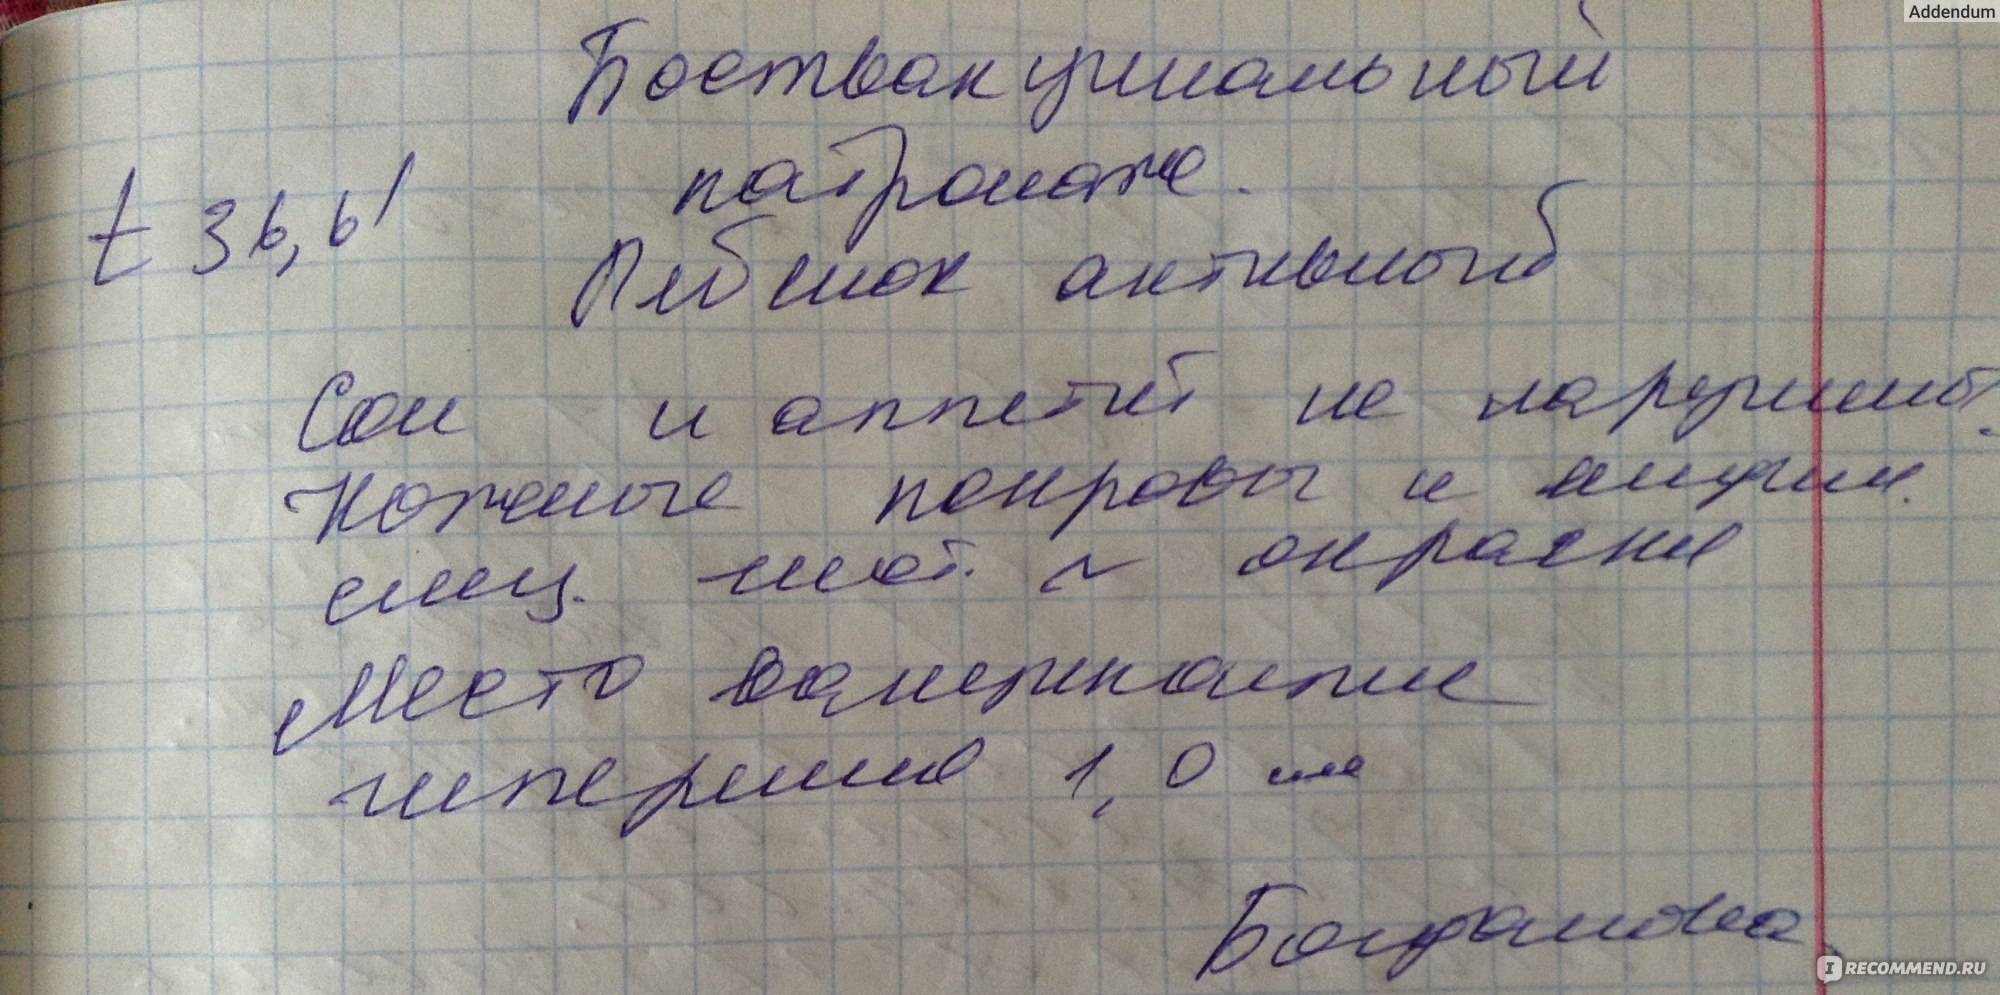 Addendum
Поствакцинальный
патронаж.
t 36,6'
Ребенок активный
Сон и аппетит не нарушены.
Кожные покровы и видим.
слиз. чист. N окраски
Место вакцинации
гиперемия 1,0 мм
Богданова
IRECOMMEND.RU